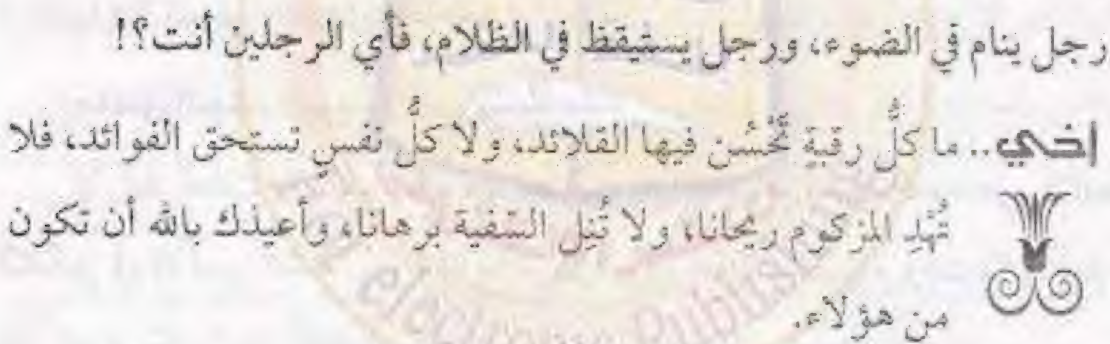 رجل ينام في الضوء، ورجل يستيقظ في الظلام، فأي الرجلين أنت؟!
إخي.. ما كلُّ رقبةٍ تَحْسُن فيها القلائد، ولا كلُّ نفسٍ تستحق الفوائد، فلا
تُهْدِ المزكوم ريحانا، ولا تُنِل السّفية برهانا، وأعيذك بالله أن تكون
من هؤلاء.
electronic Publish